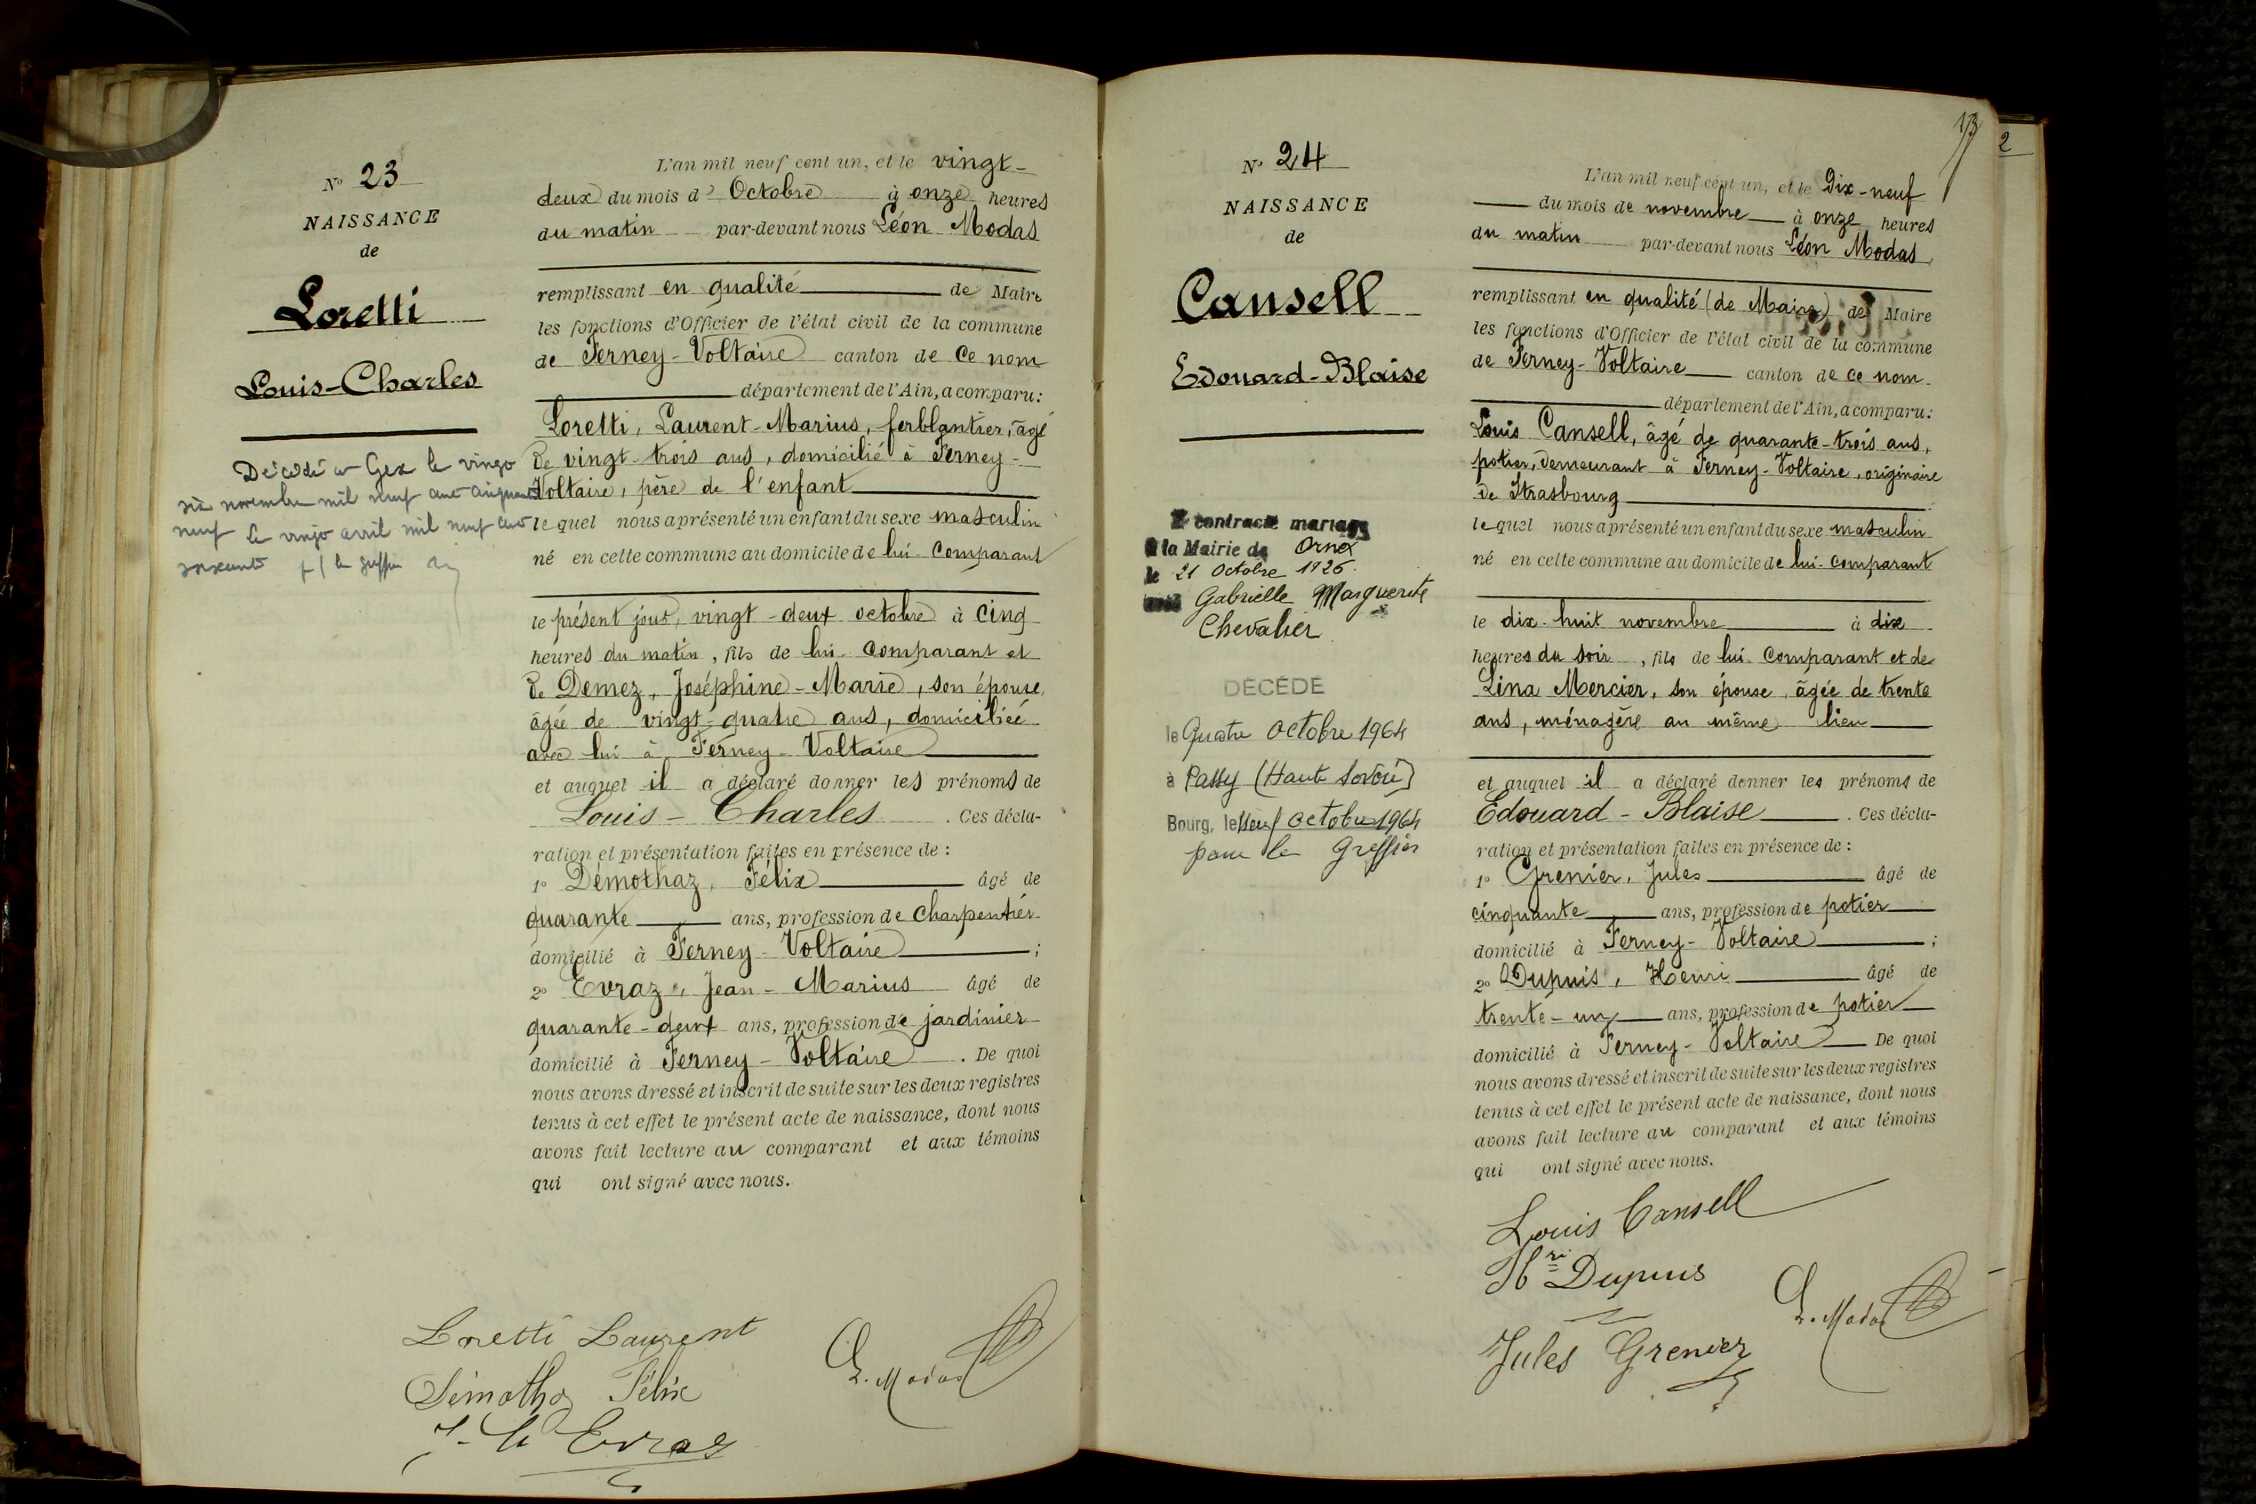 N° 23
NAISSANCE
de
Loretti
Louis-Charles
Décédé à Gex le vingt
six novembre mil neuf cent cinquante
neuf le vingt avril mil neuf cent
soixante p/ le greffier
L'an mil neuf cent un, et le vingt-
deux du mois d' Octobre à onze heures
du matin par-devant nous Léon Modas
remplissant en qualité de Maire
les fonctions d'Officier de l'état civil de la commune
de Ferney-Voltaire canton de ce nom
département de l'Ain, a comparu:
Loretti, Laurent-Marius, ferblantier, âgé
de vingt-trois ans, domicilié à Ferney-
Voltaire, père de l'enfant
lequel nous a présenté un enfant du sexe masculin
né en cette commune au domicile de lui-comparant
le présent jour, vingt-deux octobre à cinq
heures du matin, fils de lui-comparant et
de Demez, Joséphine-Marie, son épouse,
âgée de vingt-quatre ans, domiciliée
avec lui à Ferney-Voltaire
et auquel il a déclaré donner les prénoms de
Louis-Charles. Ces décla-
ration et présentation faites en présence de :
1° Démothaz, Félix âgé de
quarante ans, profession de charpentier
domicilié à Ferney-Voltaire ;
2° Evraz, Jean-Marius âgé de
quarante-deux ans, profession de jardinier
domicilié à Ferney-Voltaire. De quoi
nous avons dressé et inscrit de suite sur les deux registres
tenus à cet effet le présent acte de naissance, dont nous
avons fait lecture au comparant et aux témoins
qui ont signé avec nous.
Loretti Laurent
Démothaz Félix
J-M Evraz
L. Modas
13
2
N° 24
NAISSANCE
de
Cansell
Edouard-Blaise
A contracté mariage
à la Mairie de Ornex
le 21 Octobre 1926
avec Gabrielle Marguerite
Chevalier
DÉCÉDÉ
le Quatre octobre 1964
à Passy (Haute Savoie)
Bourg, le Neuf octobre 1964
pour le Greffier
L'an mil neuf cent un, et le Dix-neuf
du mois de novembre à onze heures
du matin par-devant nous Léon Modas
remplissant en qualité (de Maire) de Maire
les fonctions d'Officier de l'état civil de la commune
de Ferney-Voltaire canton de ce nom
département de l'Ain, a comparu:
Louis Cansell, âgé de quarante-trois ans,
potier, demeurant à Ferney-Voltaire, originaire
de Strasbourg
lequel nous a présenté un enfant du sexe masculin
né en cette commune au domicile de lui-comparant
le dix-huit novembre à dix
heures du soir, fils de lui-comparant et de
Lina Mercier, son épouse, âgée de trente
ans, ménagère au même lieu
et auquel il a déclaré donner les prénoms de
Edouard-Blaise. Ces décla-
ration et présentation faites en présence de :
1° Grenier, Jules âgé de
cinquante ans, profession de potier
domicilié à Ferney-Voltaire ;
2° Dupuis, Henri âgé de
trente-un ans, profession de potier
domicilié à Ferney-Voltaire De quoi
nous avons dressé et inscrit de suite sur les deux registres
tenus à cet effet le présent acte de naissance, dont nous
avons fait lecture au comparant et aux témoins
qui ont signé avec nous.
Louis Cansell
Hri Dupuis
L. Modas
Jules Grenier